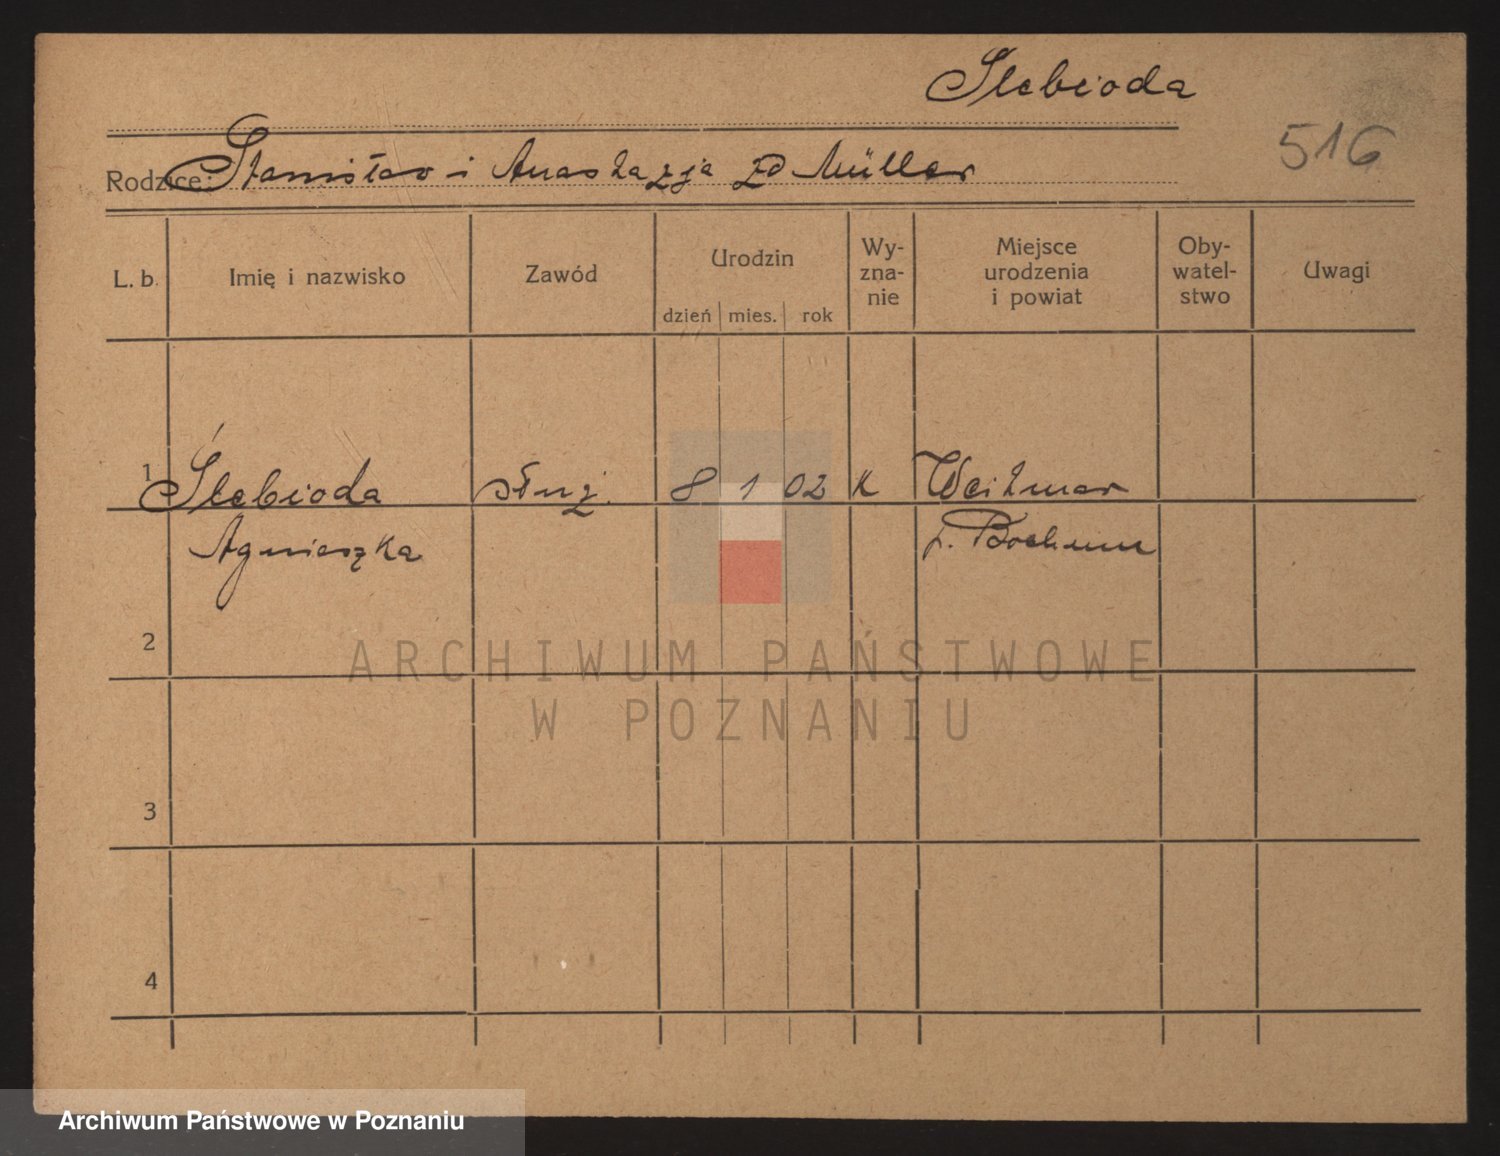 Slebioda
516
Rodzice: Stanisław i Anastazja zd Müller
L. b. Imię i nazwisko Zawód Urodzin Wy- Miejsce Oby- Uwagi
zna- urodzenia watel-
nie i powiat stwo
dzień mies. rok
1 Ślebioda służ. 8 1 02 K Weitmar
Agnieszka p. Bochum
2
ARCHIWUM PAŃSTWOWE
W POZNANIU
3
4
Archiwum Państwowe w Poznaniu